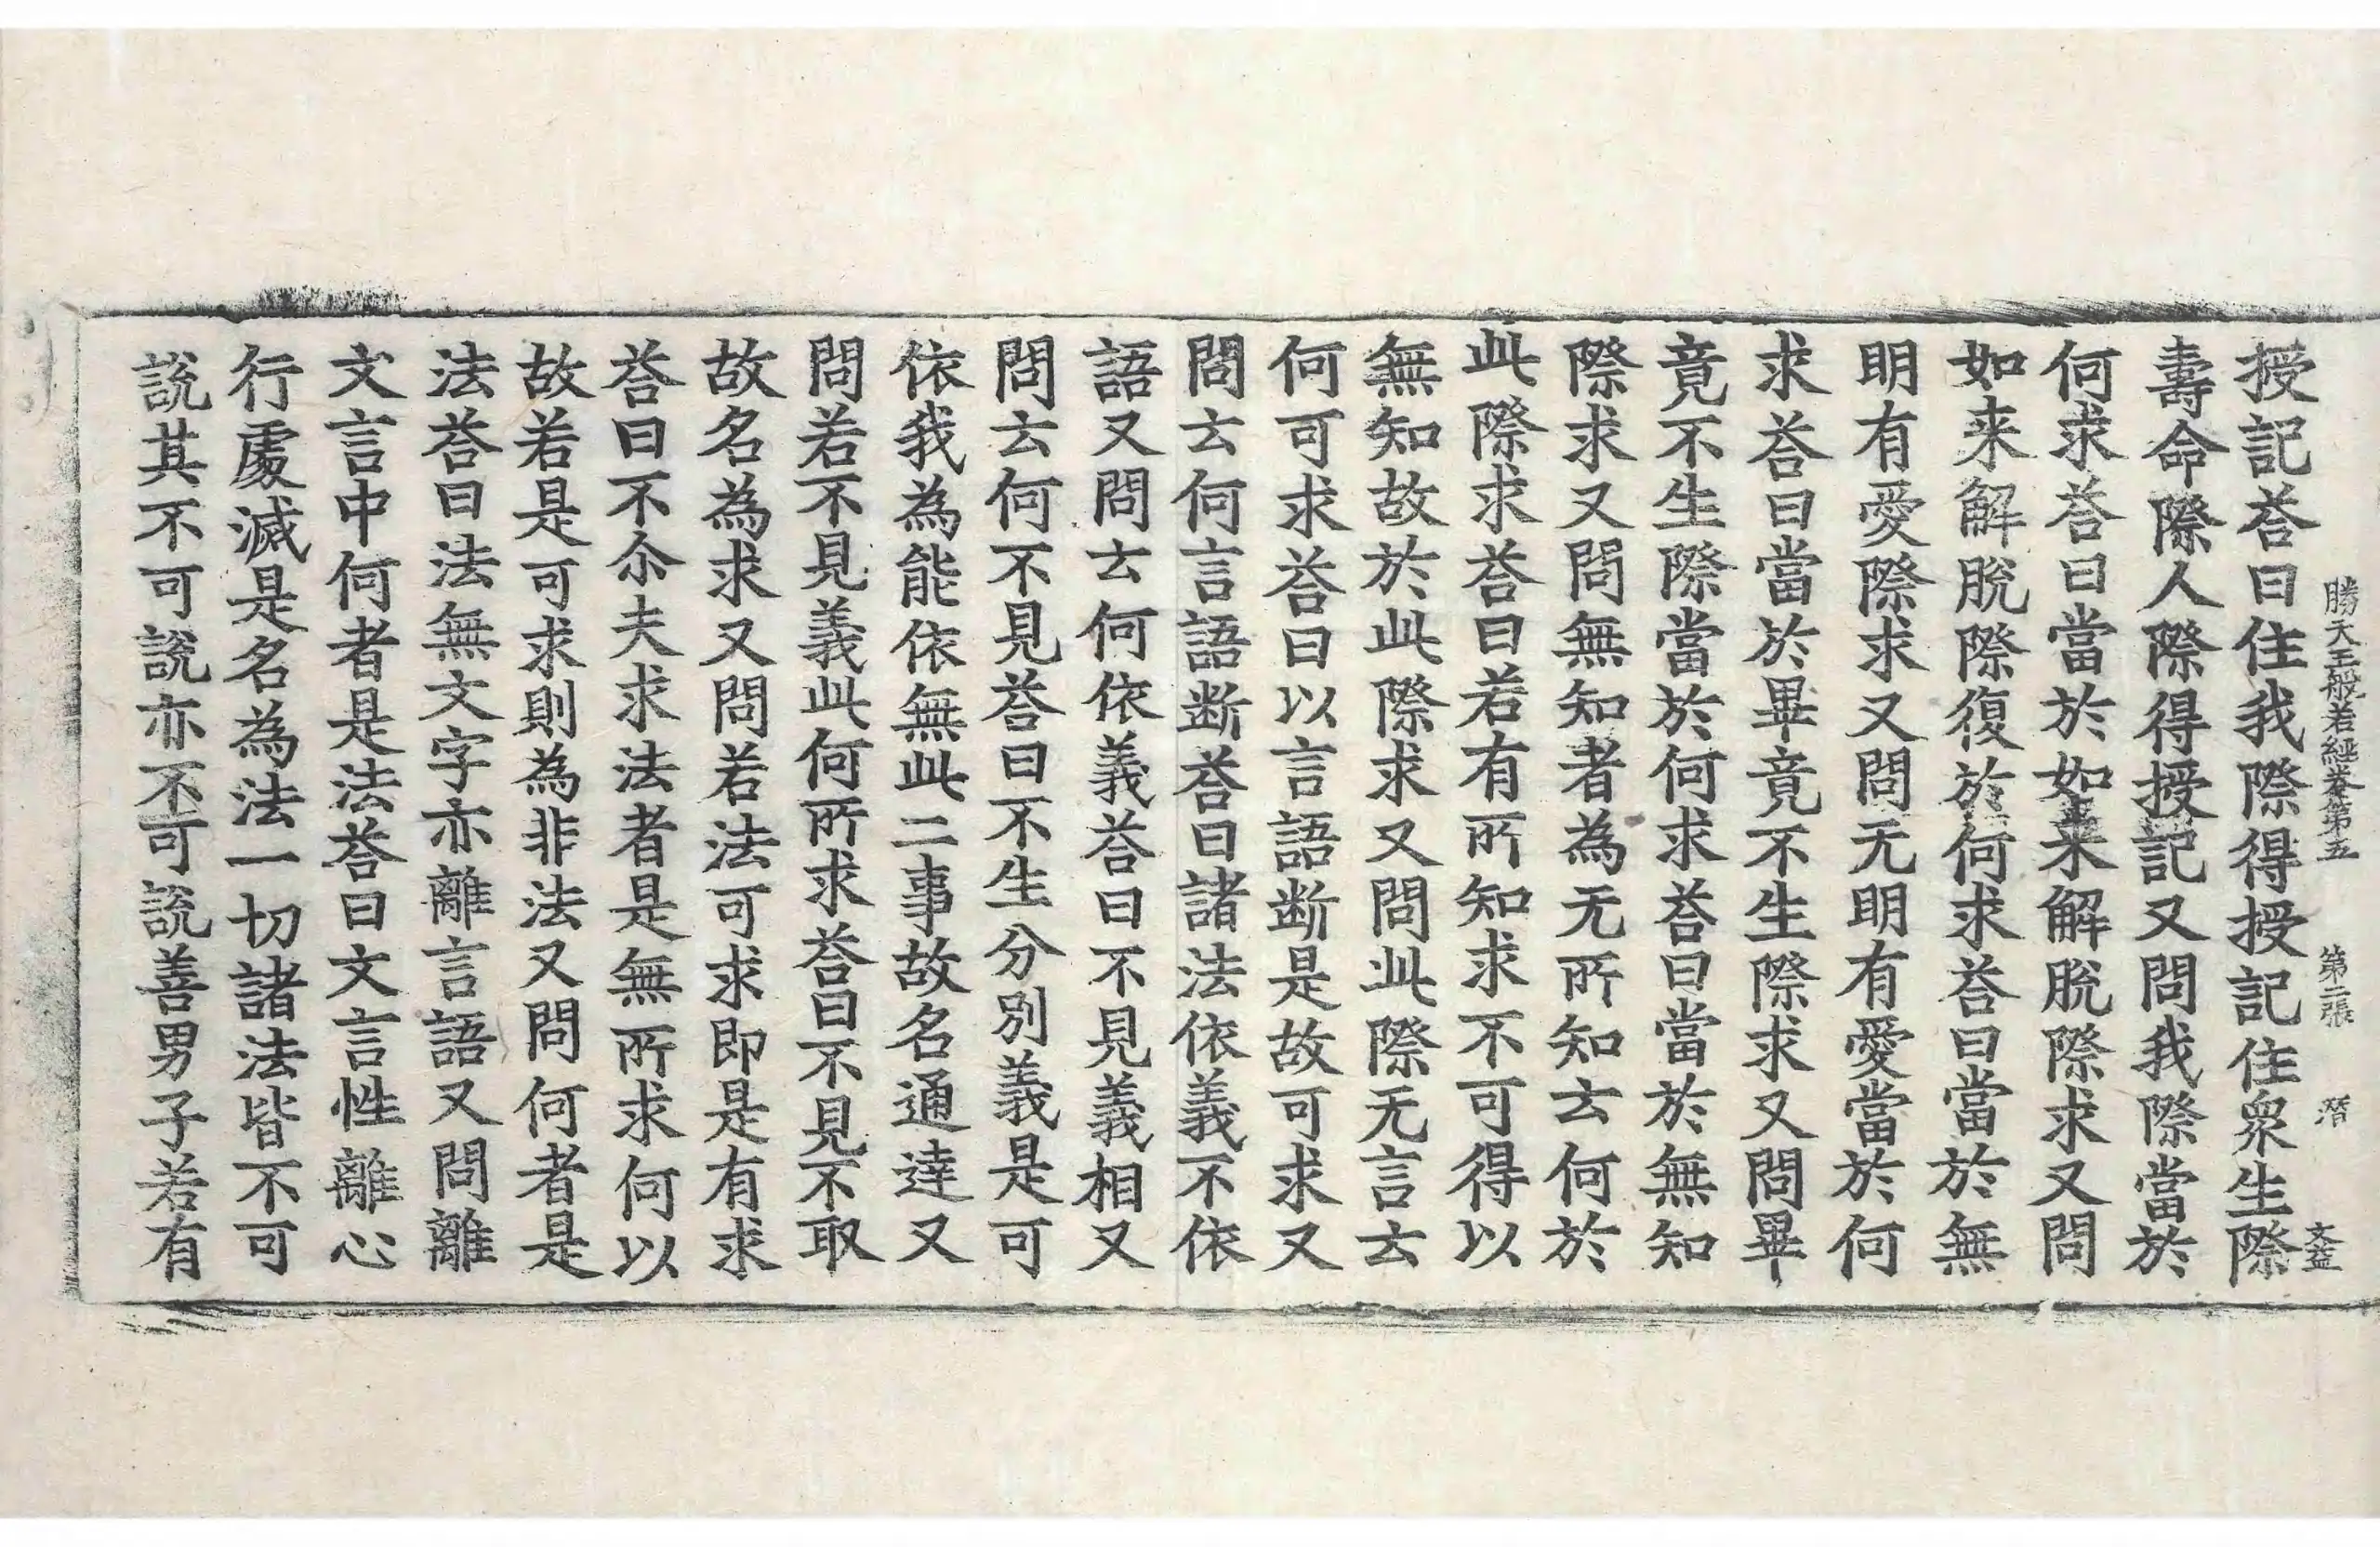 勝天王般若經卷第五　第二張　潛　文益
授記荅曰住我際得授記住衆生際
壽命際人際得授記又問我際當於
何求荅曰當於如來解脫際求又問
如来解脫際復於何求荅曰當於無
明有愛際求又問无明有愛當於何
求荅曰當於畢竟不生際求又問畢
竟不生際當於何求荅曰當於無知
際求又問無知者為无所知云何於
此際求荅曰若有所知求不可得以
無知故於此際求又問此際无言云
何可求荅曰以言語断是故可求又
問云何言語断荅曰諸法依義不依
語又問云何依義荅曰不見義相又
問云何不見荅曰不生分別義是可
依我為能依無此二事故名通達又
問若不見義此何所求荅曰不見不取
故名為求又問若法可求即是有求
荅曰不尒夫求法者是無所求何以
故若是可求則為非法又問何者是
法荅曰法無文字亦離言語又問離
文言中何者是法荅曰文言性離心
行處滅是名為法一切諸法皆不可
說其不可說亦不可說善男子若有